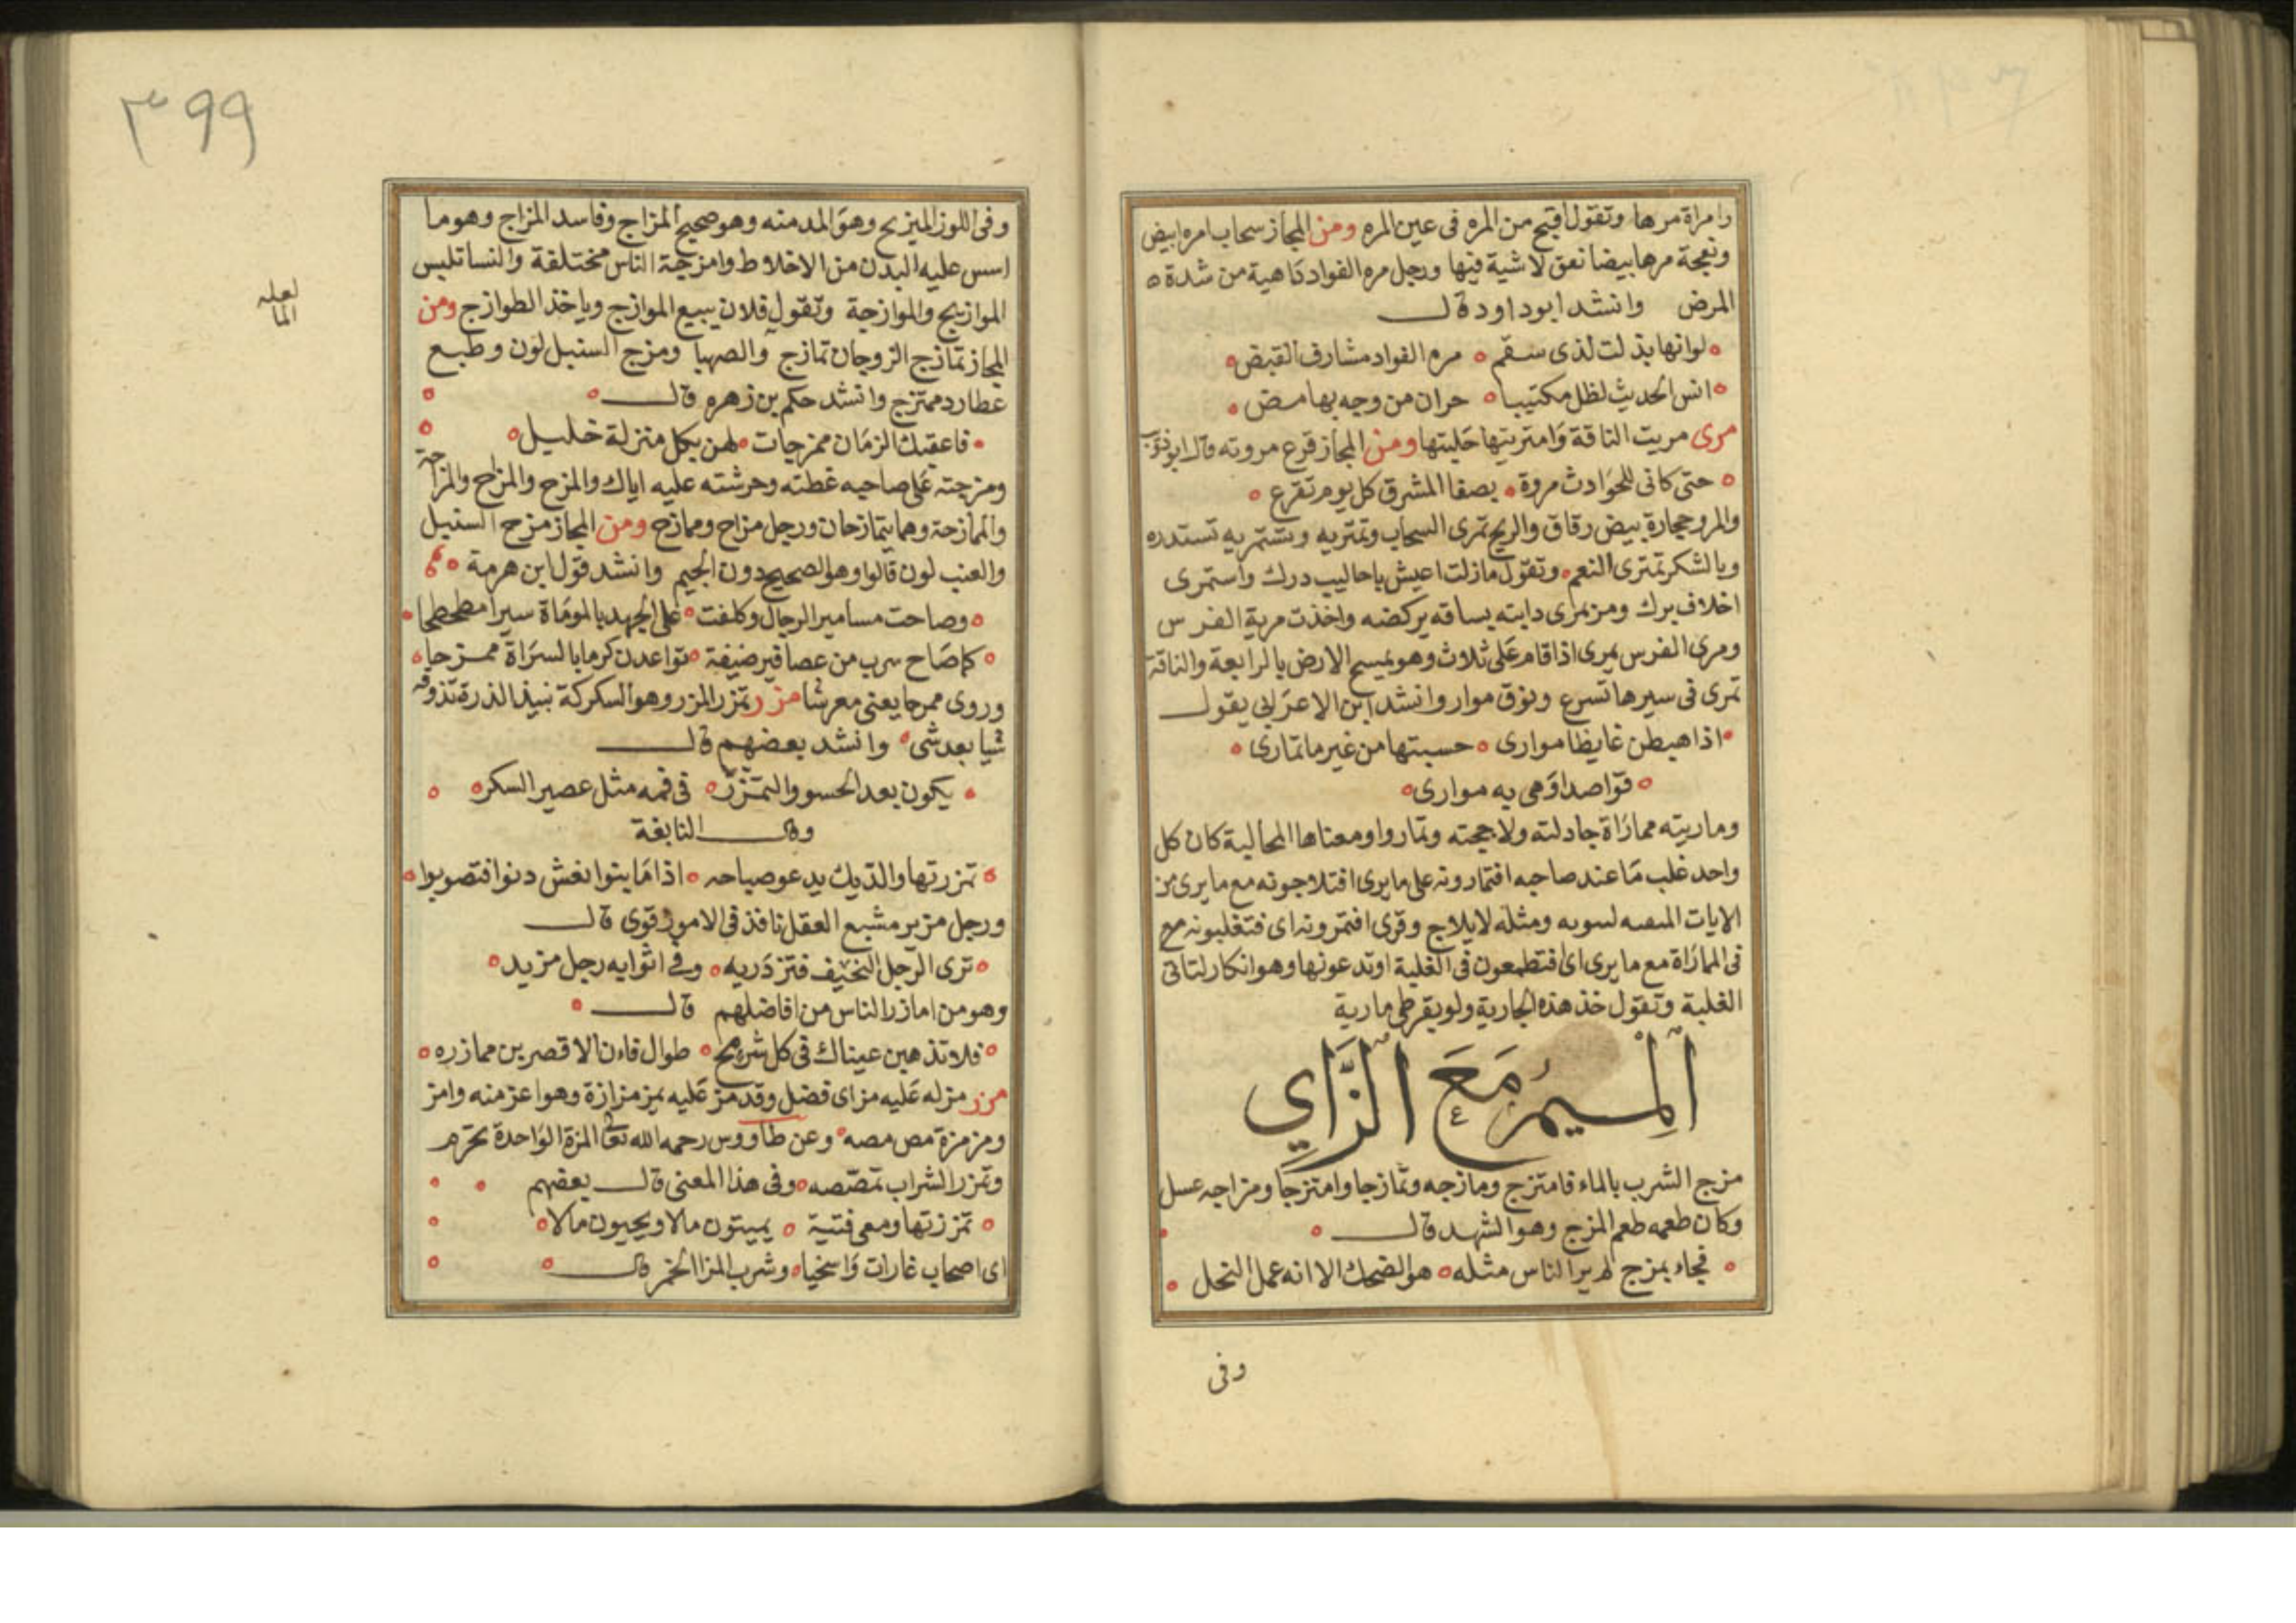 وامراة مرها وتقول اقبح من المره فى عين المره ومن المجاز سحاب امره ابيض
ونعجة مرها بيضا نعق لا شية فيها ورجل مره الفواد داهية من شدة
المرض وانشد ابو داود قال
لو انها بذلت لذى سقم مره الفواد مشارف القبض
انس الحديث لظل مكتيبا حران من وجه بها مض
مرى مريت الناقة وامتريتها حلبتها ومن المجاز قرع مروته قال ابو ذؤيب
حتى كانى للحوادث مروة بصفا المشرق كل يوم تقرع
والمرو حجارة بيض رقاق والريح تمرى السحاب وتمتريه وتستمريه تستدره
وبالشكر تمترى النعم وتقول مازلت اعيش باحاليب درك واستمرى
اخلاف برك ومن مرى دابته بساقه يركضه واخذت مرية الفرس
ومرى الفرس يمرى اذا قام على ثلاث وهو يمسح الارض بالرابعة والناقة
تمرى فى سيرها تسرع ونوق موار وانشد ابن الاعرابى يقول
اذا هبطن غايظا موارى حسبتها من غير ما تمارى
قواصدا وهى به موارى
وماريته مماراة جادلته ولاججته وتماروا ومعناها المحالبة كان كل
واحد غلب ما عند صاحبه افتمارونه على ما يرى افتلاجونه مع ما يرى من
الايات ومثله لايلاج وقرى افتمرونه اى فتغلبونه مع
فى المماراة مع ما يرى اى افتطمعون فى الغلبة اوتدعونها وهو انكار لتاتى
الغلبة وتقول خذ هذه الجارية ولو بقرطى مارية
الميم مع الزاي
مزج الشرب بالماء فامتزج ومازجه وتمازجا وامتزجا ومزاجه عسل
وكان طعمه طعم المزج وهو الشهد قال
فجاء بمزج لم ير الناس مثله هو الضحك الا انه عمل النحل
وفى
٣٩٩
وفى اللوز الميزيج وهو المد منه وهو صحيح المزاج وفاسد المزاج وهو ما
اسس عليه البدن من الاخلاط وامزجة الناس مختلفة والنسا تلبس
لعله
الما
الموازيج والموازجة وتقول فلان يبيع الموازج وياخذ الطوازج ومن
المجاز تمازج الزوجان تمازج والصهبا ومزج السنبل لون وطبع
عطارد ممتزج وانشد حكم بن زهره قال
فاعقبك الزمان ممزجات لهن بكل منزلة خليل
ومزجته على صاحبه غطته وحرشته عليه اياك والمزح والمزاح والمزاحة
والممازحة وهما يتمازحان ورجل مزاح وممازح ومن المجاز مزح السنبل
والعنب لون قالوا وهو الصحيح دون الجيم وانشد قول ابن هرمة
وصاحت مسامير الرحال وكلفت على الجهد بالموماة سيرا مطحطحا
كما صاح سرب من عصافير ضيفة تواعدن كرما بالسراة ممزحا
وروى ممرحا يعنى معرشا مزر تمزر المزر وهو السكركة نبيذ الذرة تذوقه
شيا بعد شى وانشد بعضهم قال
يكون بعد الحسو والتمزر فى فمه مثل عصير السكر
وقال النابغة
تمزرتها والديك يدعو صباحه اذا ما بنوا نعش دنوا فتصوبوا
ورجل مزير مشبع العقل نافذ فى الامور قوى قال
ترى الرجل النحيف فتزدريه وفى اثوابه رجل مزيد
وهو من امازر الناس من افاضلهم قال
فلا تذهبن عيناك فى كل شرمح طوال فان الاقصرين ممازره
مزز مزله عليه مز اى فضل وقد مز عليه يمز مزازة وهو اعز منه وامز
ومزمزة مص مصه وعن طاووس رحمه الله تعالى المزة الواحدة تحرم
وتمزر الشراب تمصصه وفى هذا المعنى قال بعضهم
تمززتها ومعى فتية يميتون مالا ويحيون مالا
اى اصحاب غارات واسخيا وشرب المزا الخمر قال